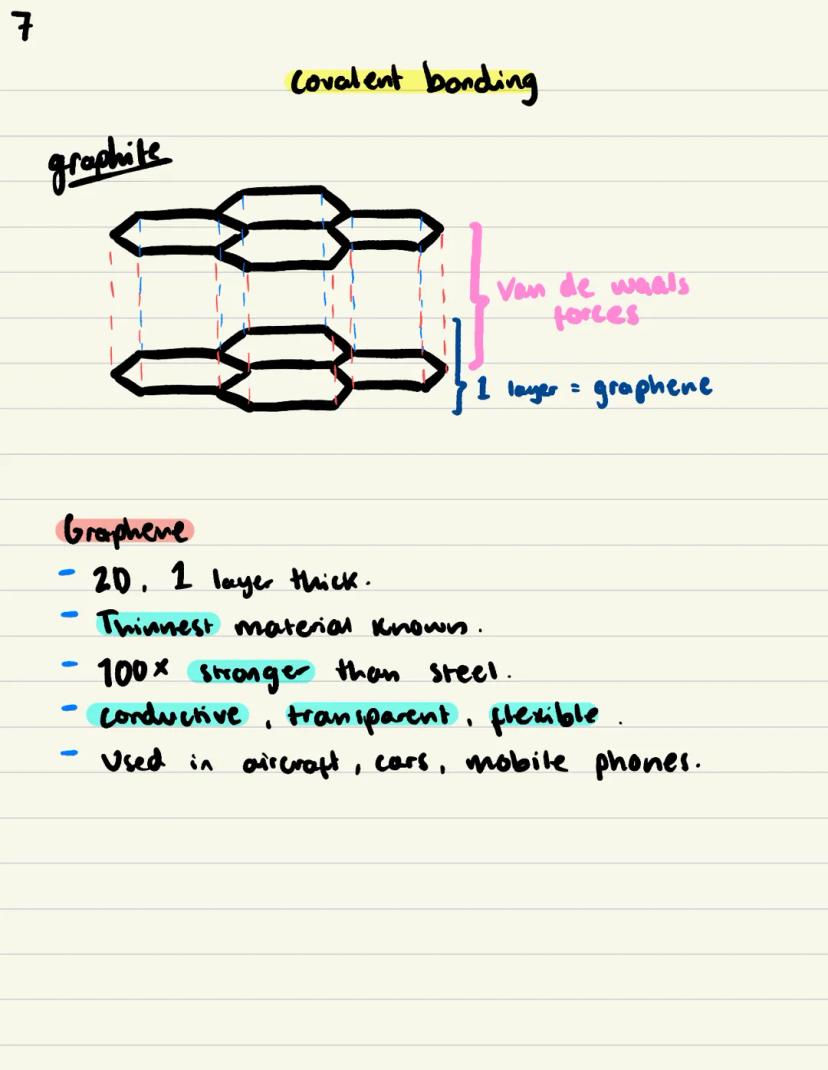 7
covalent bonding
graphite
Van de waals
forces
1 layer = graphene
Graphene
- 2D, 1 layer thick.
- Thinnest material known.
- 100x stronger than steel.
- conductive, transparent, flexible.
- Used in aircraft, cars, mobile phones.